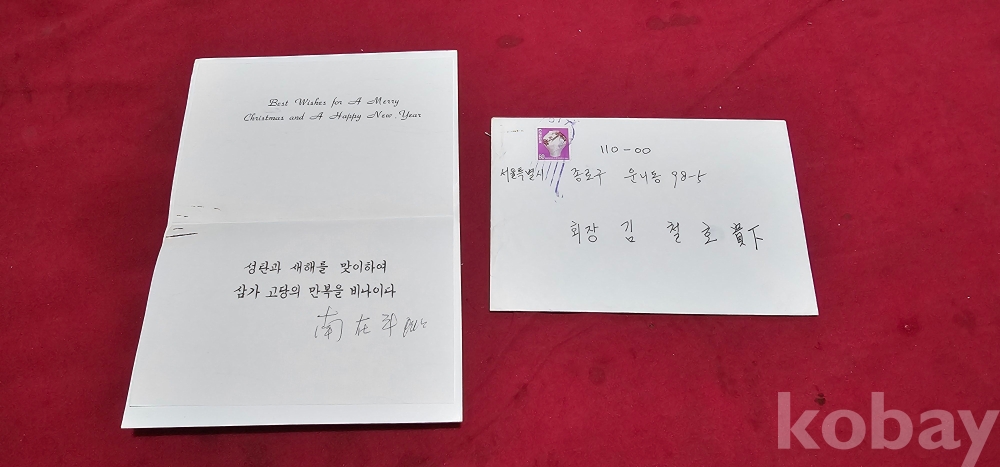 Best Wishes for A Merry
Christmas and A Happy New Year
성탄과 새해를 맞이하여
삼가 고당의 만복을 비나이다
南在斗
60
110-00
서울특별시 종로구 운니동 98-5
회장 김 철 호 貴下
kobay